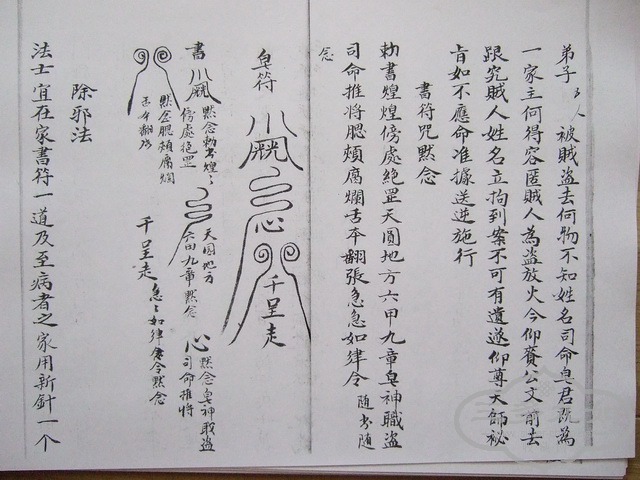 弟子 厶人 被賊盗去何物不知姓名司命皂君既為
一家主何得容匿賊人為盗放火今仰賫公文前去
跟究賊人姓名立拘到案不可有遺遂仰尊天師祕
肯如不應命准據送逆施行
書符咒默念
勅書煌煌傍處絶罡天圓地方六甲九章皂神職盗
司命推将腮頰腐爛舌本翻張急急如律令 随書随
念
皂符
千呈走
書
默念勅書煌煌
傍處絶罡
天圓地方
六甲九章默念
心
默念皂神職盗
司命推将
默念腮頰腐爛
舌本翻張
千呈走
急急如律令默念
除邪法
法士宜在家書符一道及至病者之家用新針一个